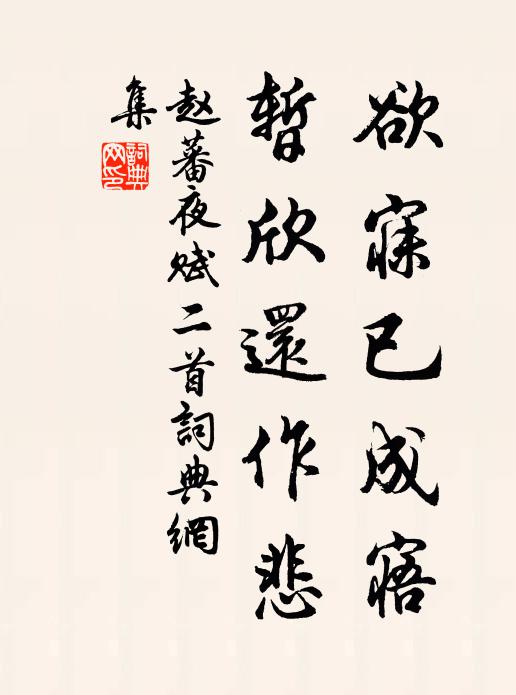 欲寐已成寤
暫欣還作悲
赵蕃夜赋二首詞典網
集
詞典
网印